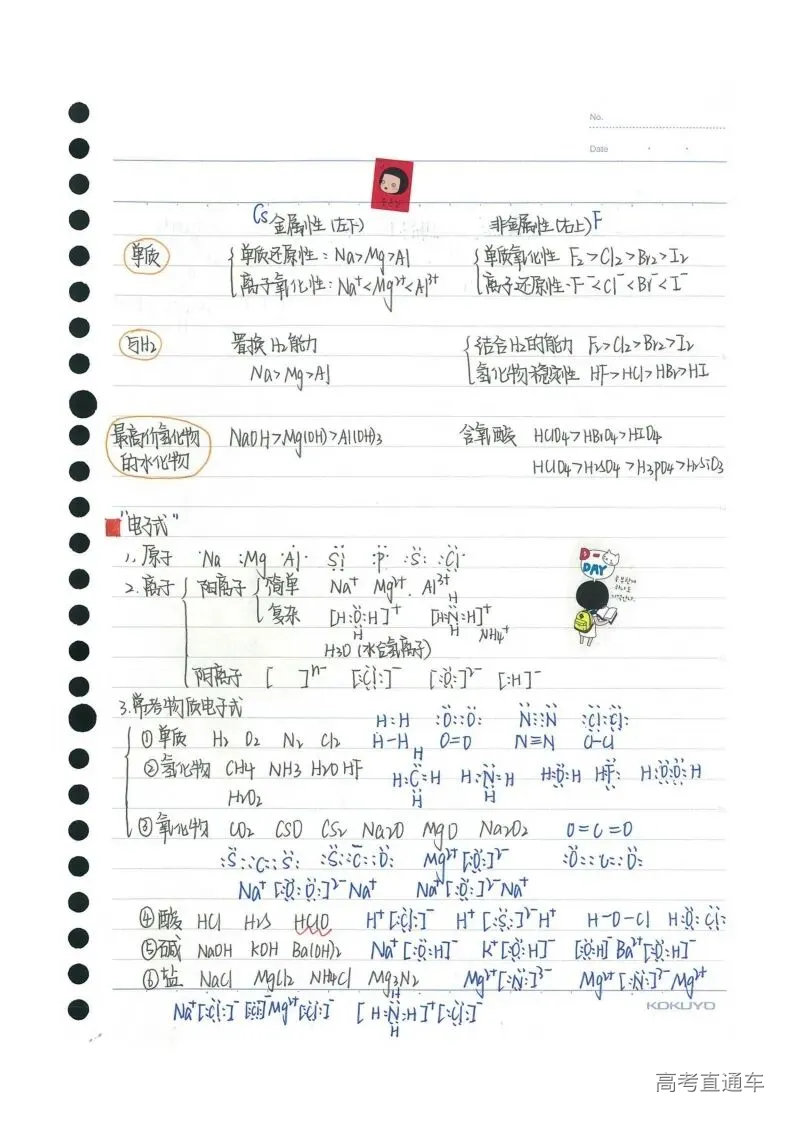 No.
Date
Cs 金属性(左下) 非金属性(右上)F
单质 单质还原性：Na>Mg>Al 单质氧化性 F₂>Cl₂>Br₂>I₂
离子氧化性：Na⁺<Mg²⁺<Al³⁺ 离子还原性·F⁻<Cl⁻<Br⁻<I⁻
与H₂ 置换H₂能力 结合H₂的能力 F₂>Cl₂>Br₂>I₂
Na>Mg>Al 氢化物稳定性 HF>HCl>HBr>HI
最高价氧化物的水化物 NaOH>Mg(OH)>Al(OH)₃ 含氧酸 HClO₄>HBrO₄>HIO₄
HClO₄>H₂SO₄>H₃PO₄>H₂SiO₃
D-DAY
"电子式"
1、原子 ·Na :Mg ·Al· ·Si· ·P· :S: :Cl·
2、离子 阳离子 简单 Na⁺ Mg²⁺. Al³⁺
复杂 [H:O:H]⁺ [H:N:H]⁺
H H H NH₄⁺
H₃O (水合氢离子)
阳离子 [ ]ⁿ⁻ [:Cl:]⁻ [:O:]²⁻ [:H]⁻
3.常考物质电子式
H:H :O::O: N⋮⋮N :Cl:Cl:
①单质 H₂ O₂ N₂ Cl₂ H-H O=O N≡N Cl-Cl
②氢化物 CH₄ NH₃ H₂O HF H:C:H H:N:H H:O:H H:F: H:O:O:H
H H H
H₂O₂
③氧化物 CO₂ CSO CS₂ Na₂O MgO Na₂O₂ O=C=O
:S::C::S: :S::C::O: Mg²⁺[:O:]²⁻ :O::C::O:
Na⁺[:O:O:]²⁻Na⁺ Na⁺[:O:]²⁻Na⁺
④酸 HCl H₂S HClO H⁺[:Cl:]⁻ H⁺[:S:]²⁻H⁺ H-O-Cl H:O:Cl:
⑤碱 NaOH KOH Ba(OH)₂ Na⁺[:O:H]⁻ K⁺[:O:H]⁻ [:O:H]⁻Ba²⁺[:O:H]⁻
⑥盐 NaCl MgCl₂ NH₄Cl Mg₃N₂ Mg²⁺[:N:]³⁻ Mg²⁺[:N:]³⁻Mg²⁺
KOKUYO
Na⁺[:Cl:]⁻ [:Cl:]⁻Mg²⁺[:Cl:]⁻ [H:N:H]⁺[:Cl:]⁻
H H
高考直通车